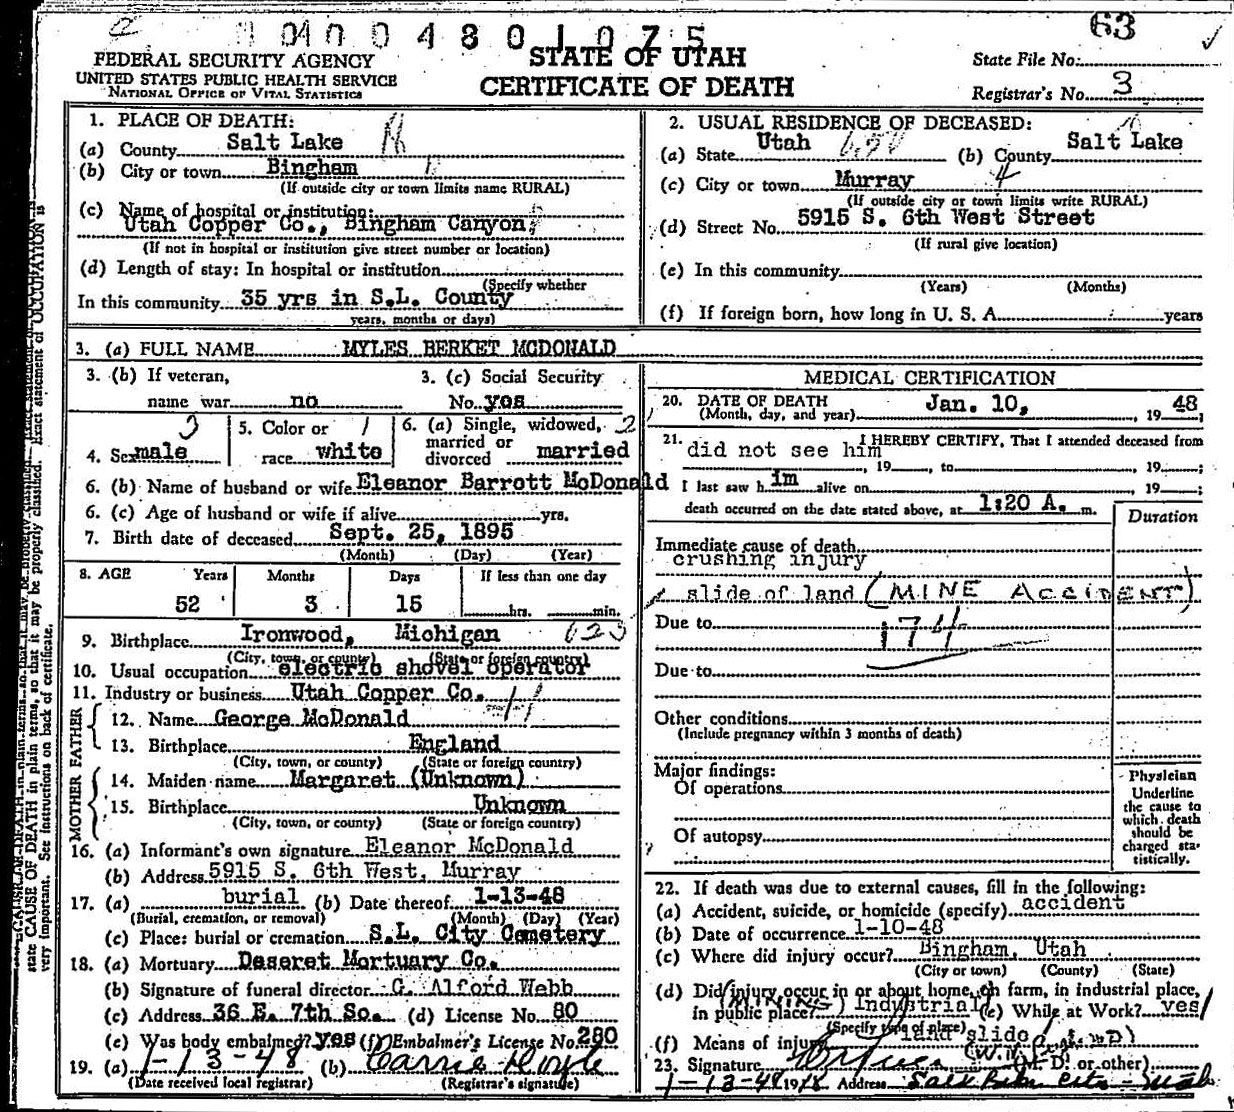 63
FEDERAL SECURITY AGENCY
UNITED STATES PUBLIC HEALTH SERVICE
NATIONAL OFFICE OF VITAL STATISTICS
STATE OF UTAH
CERTIFICATE OF DEATH
State File No.
Registrar's No. 3
1. PLACE OF DEATH:
(a) County Salt Lake
(b) City or town Bingham
(If outside city or town limits name RURAL)
(c) Name of hospital or institution:
Utah Copper Co., Bingham Canyon,
(If not in hospital or institution give street number or location)
(d) Length of stay: In hospital or institution
(Specify whether
In this community 35 yrs in S.L. County
years, months or days)
2. USUAL RESIDENCE OF DECEASED:
(a) State Utah (b) County Salt Lake
(c) City or town Murray
(If outside city or town limits write RURAL)
(d) Street No. 5915 S. 6th West Street
(If rural give location)
(e) In this community
(Years) (Months)
(f) If foreign born, how long in U. S. A. years
3. (a) FULL NAME MYLES BERKET MCDONALD
3. (b) If veteran, name war no
3. (c) Social Security No. yes
4. Sex male
5. Color or race white
6. (a) Single, widowed, married or divorced married
6. (b) Name of husband or wife Eleanor Barrott McDonald
6. (c) Age of husband or wife if alive yrs.
7. Birth date of deceased Sept. 25, 1895
(Month) (Day) (Year)
8. AGE Years Months Days If less than one day
52 3 15 hrs. min.
9. Birthplace Ironwood, Michigan
(City, town, or county) (State or foreign country)
10. Usual occupation electric shovel operator
11. Industry or business Utah Copper Co.
FATHER
12. Name George McDonald
13. Birthplace England
(City, town, or county) (State or foreign country)
MOTHER
14. Maiden name Margaret (Unknown)
15. Birthplace Unknown
(City, town, or county) (State or foreign country)
16. (a) Informant's own signature Eleanor McDonald
(b) Address 5915 S. 6th West, Murray
17. (a) burial (b) Date thereof 1-13-48
(Burial, cremation, or removal) (Month) (Day) (Year)
(c) Place: burial or cremation S.L. City Cemetery
18. (a) Mortuary Deseret Mortuary Co.
(b) Signature of funeral director G. Alford Webb
(c) Address 36 E. 7th So. (d) License No. 80
(e) Was body embalmed? yes (f) Embalmer's License No. 280
19. (a) 1-13-48 (b) Carrie
(Date received local registrar) (Registrar's signature)
MEDICAL CERTIFICATION
20. DATE OF DEATH
(Month, day, and year) Jan. 10, 1948
21. I HEREBY CERTIFY, That I attended deceased from
did not see him , 19 , to , 19 ;
I last saw him alive on , 19 ;
death occurred on the date stated above, at 1:20 A. m.
Duration
Immediate cause of death
crushing injury
slide of land (MINE ACCIDENT)
Due to 174
Due to
Other conditions
(Include pregnancy within 3 months of death)
Major findings:
Of operations
Of autopsy
Physician
Underline
the cause to
which death
should be
charged sta-
tistically.
22. If death was due to external causes, fill in the following:
(a) Accident, suicide, or homicide (specify) accident
(b) Date of occurrence 1-10-48
(c) Where did injury occur? Bingham, Utah
(City or town) (County) (State)
(d) Did injury occur in or about home, on farm, in industrial place,
in public place? (MINING) Industrial (e) While at Work? yes
(Specify type of place)
(f) Means of injury land slide
23. Signature (M. D. or other)
1-13-48 1948 Address Salt Lake City - Utah
state CAUSE OF DEATH in plain terms, so that it may be properly classified. Exact statement of OCCUPATION is
very important. See instructions on back of certificate.